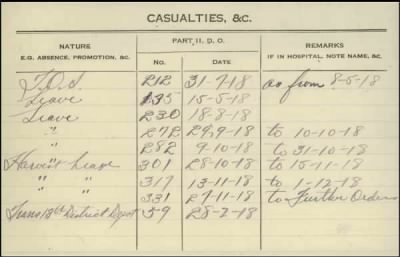 CASUALTIES, &C.
NATURE PART II. D. O. REMARKS
E.G. ABSENCE, PROMOTION, &C. NO. DATE IF IN HOSPITAL, NOTE NAME, &C.
T.O.S. 212 31-7-18 as from 8-5-18
Leave 135 15-5-18
Leave 230 18-8-18
" 272 29-9-18 to 10-10-18
" 282 9-10-18 to 31-10-18
Harvest Leave 301 28-10-18 to 15-11-18
" " 317 13-11-18 to 1-12-18
" " 331 27-11-18 to Further Orders
Trans 13th District Depot 59 28-2-18